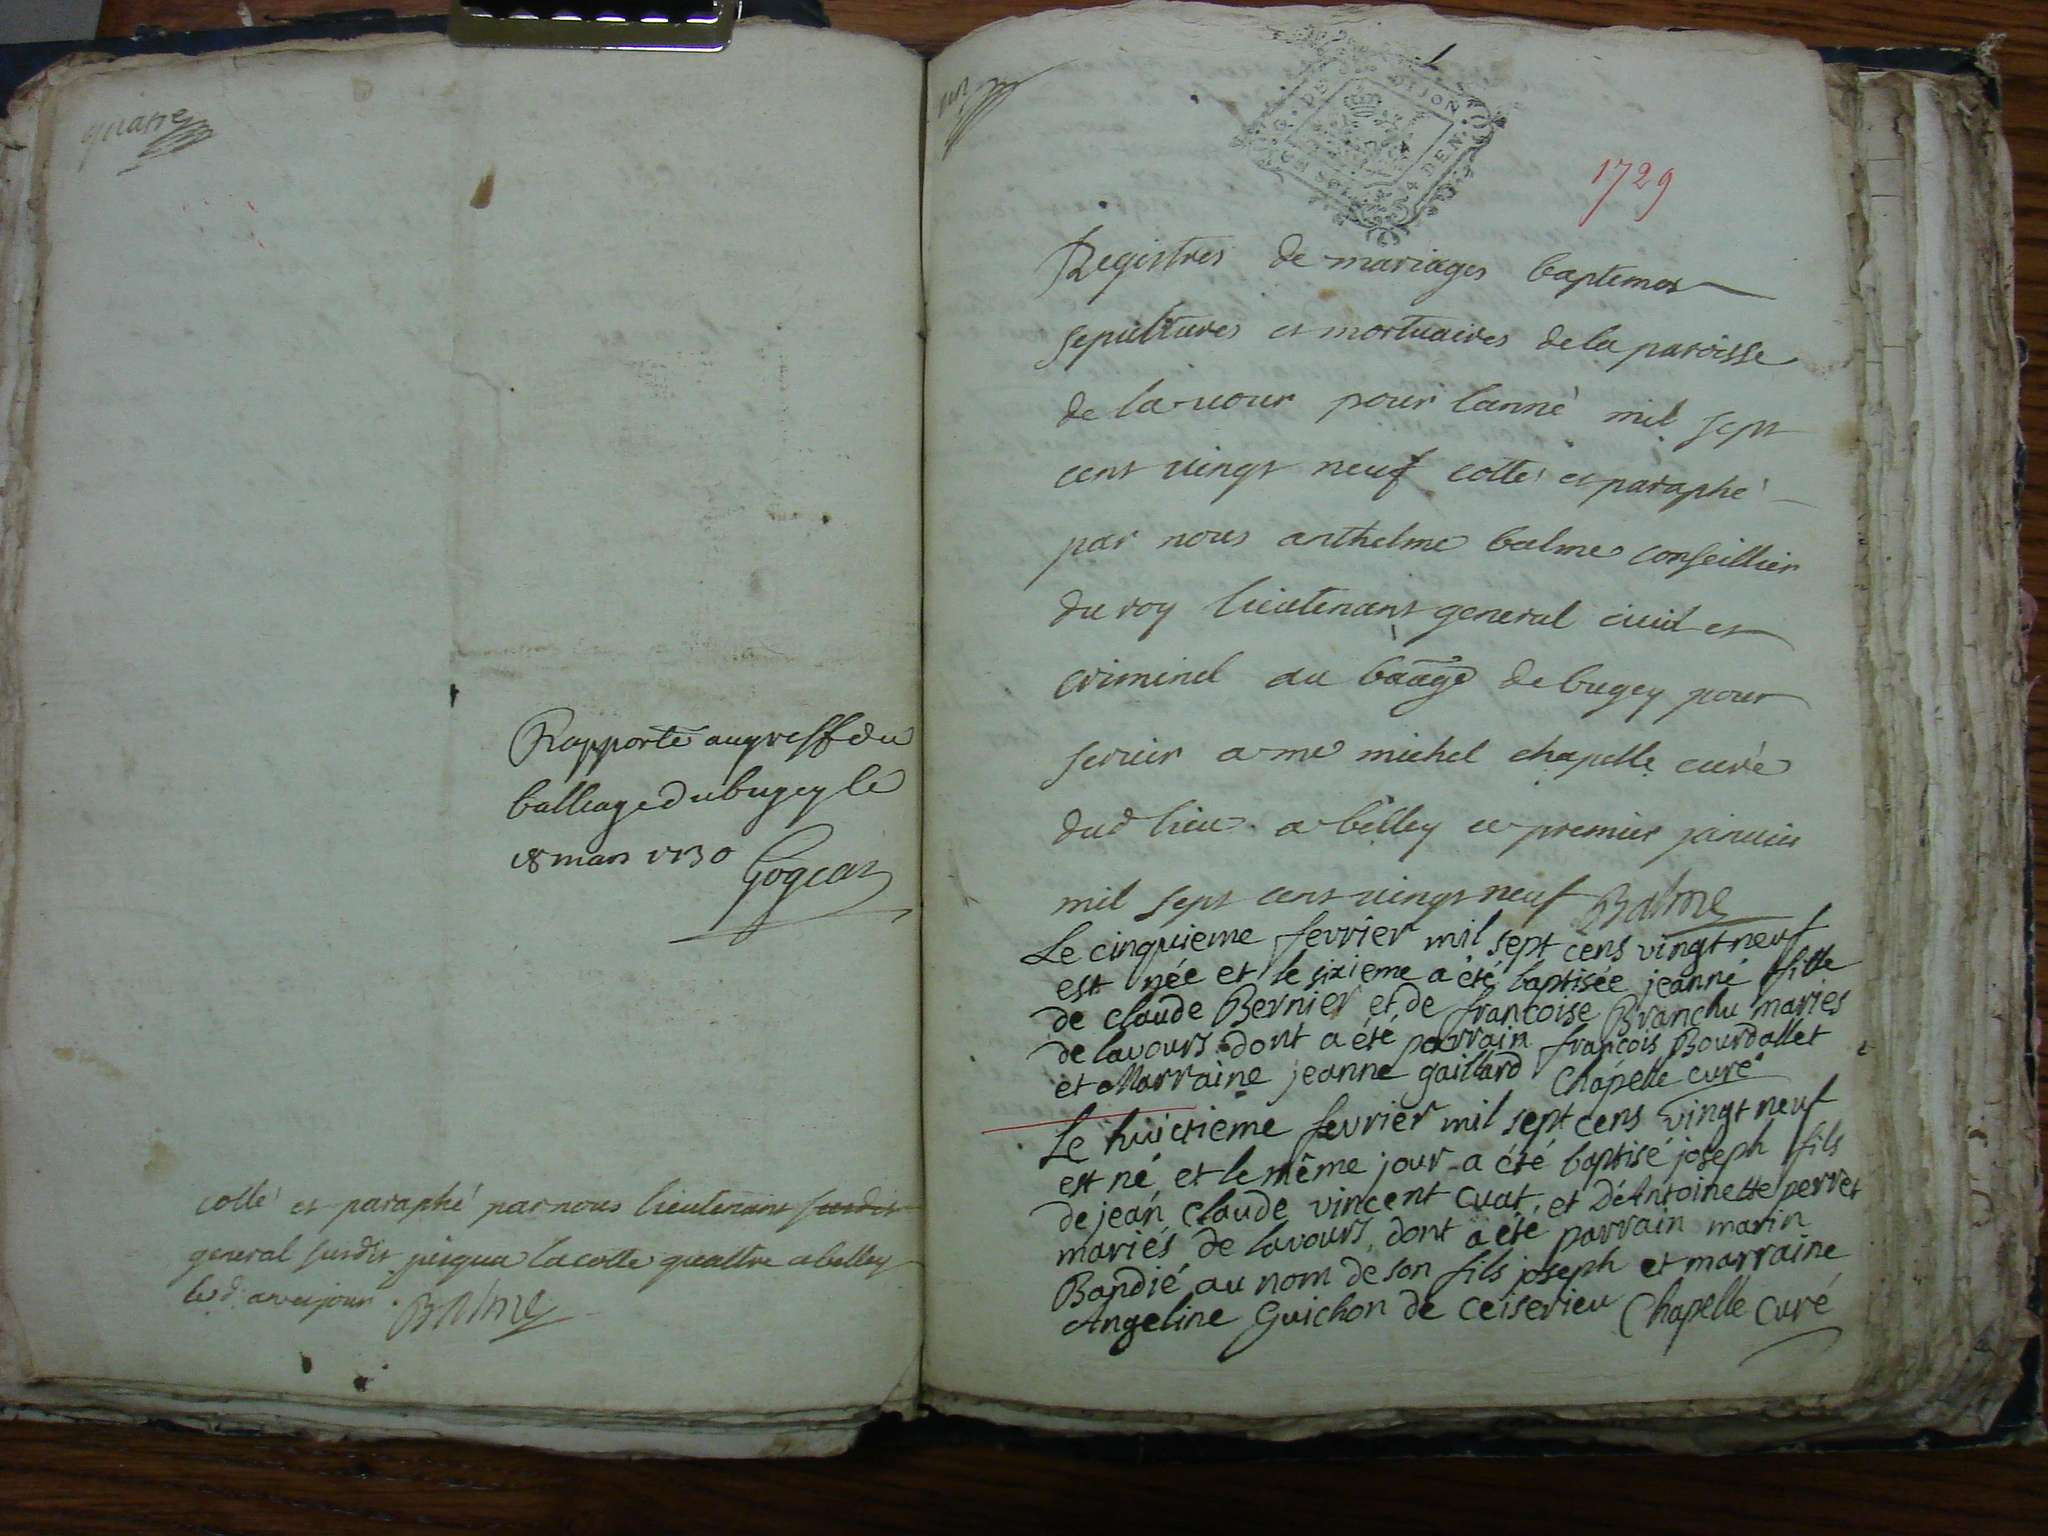 quatre
Rapporté au greffe du
balliage du bugey le
18 mars 1730
cotté et paraphé par nous lieutenant susdit
general susdit jusqua la cotte quattre a belley
Balme
un
DE DIJON
1729
Registres de mariages baptemes
sepultures et mortuaires de la paroisse
de lavour pour lanné mil sept
cent vingt neuf cotté et paraphé
par nous anthelme balme conseillier
du roy lieutenant general civil et
criminel au baage de bugey pour
servir a me michel chapelle curé
dud lieu a belley ce premier janvier
mil sept cent vingt neuf Balme
Le cinquieme fevrier mil sept cens vingt neuf
est née et le sixieme a été baptisée jeanne fille
de claude Bernier et de francoise Branchu maries
de lavours dont a été parrain françois Bourdallet
et Marraine jeanne gaillard Chapelle curé
Le huictieme fevrier mil sept cens vingt neuf
est né et le même jour a été baptisé joseph fils
de jean claude vincent cuat et d'Antoinette perret
mariés de lavours, dont a été parrain marin
Bandié au nom de son fils joseph et marraine
Angeline Guichon de ceiserieu Chapelle Curé